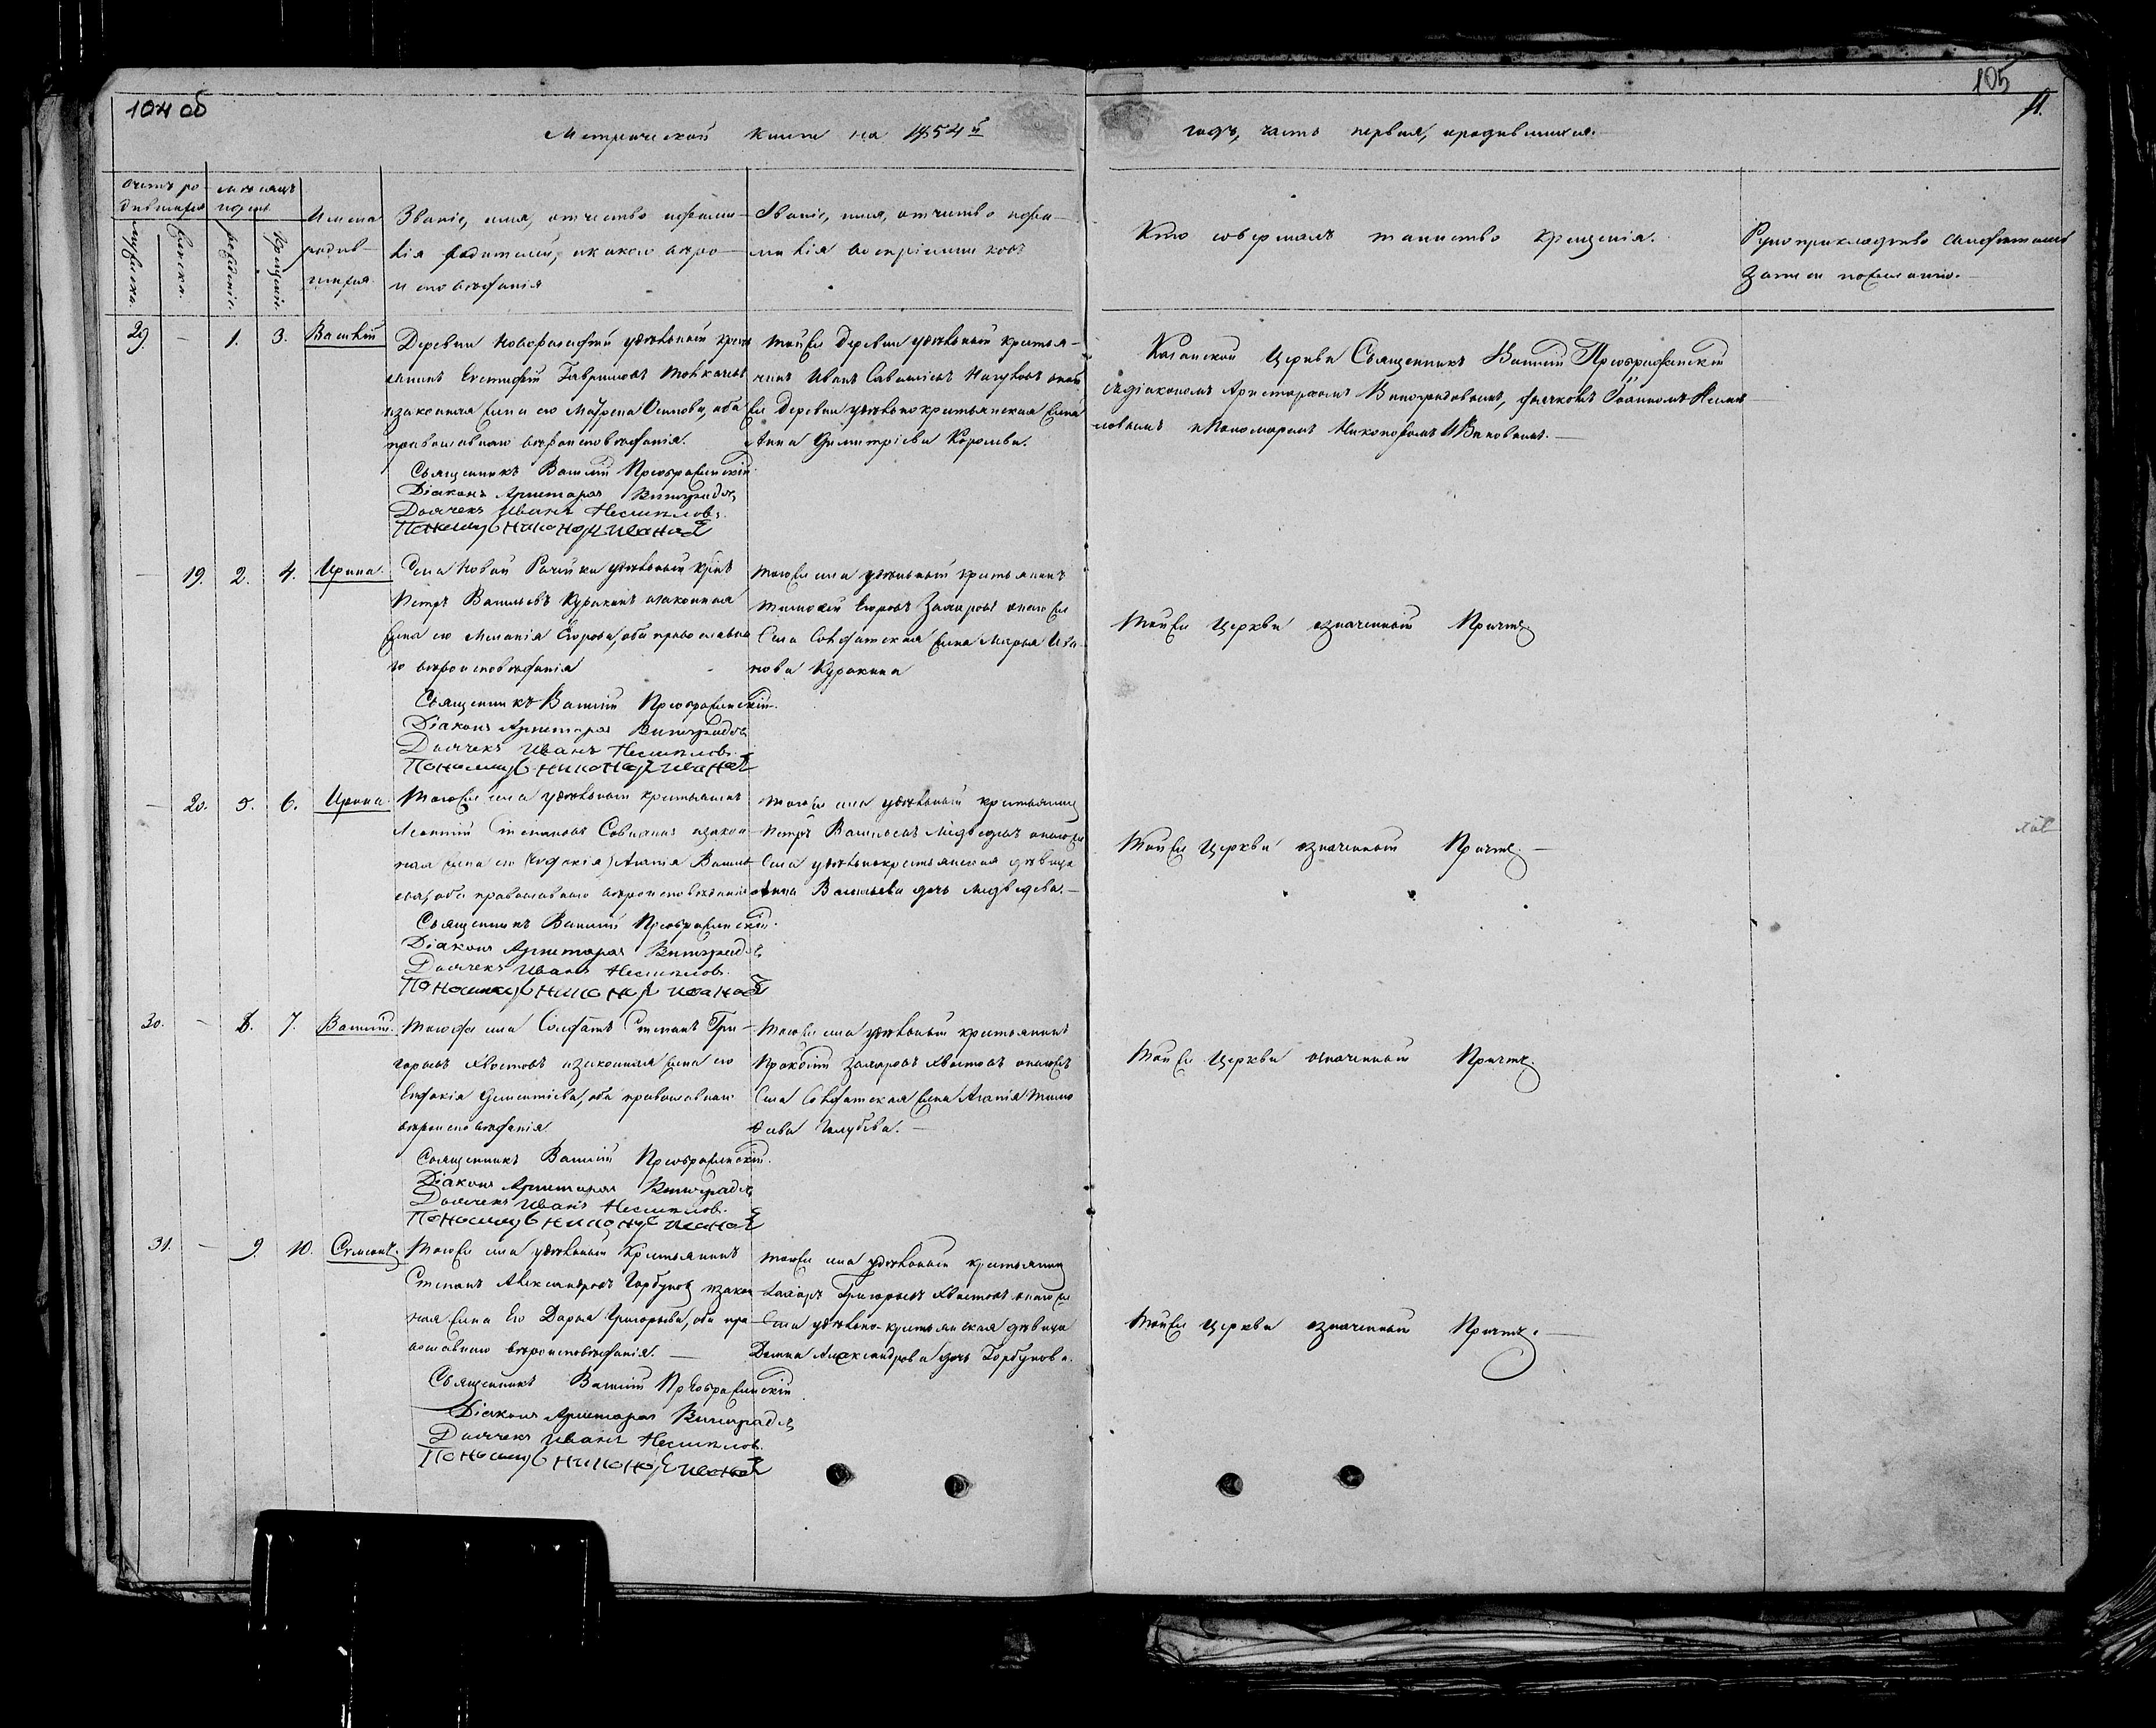 104 об
105
11.
Метрической книги на 1854й
годъ, часть первая, о родившихся.
Счетъ ро-
дившихся
мѣсяцъ
и день
мужеска.
женска.
рожденіе.
крещеніе.
Имена
родив-
шихся
Званіе, имя, отчество и фами-
лія родителей, и какого вѣро-
исповѣданія
Званіе, имя, отчество и фа-
милія воспріемниковъ
Кто совершалъ таинство крещенія.
Рукоприкладство свидѣтелей
записи по желанію.
29 — 1. 3. Василій
Деревни удѣльный кресть
янинъ Евстифій Гавриловъ
и законная жена его Матрена Осипова, оба
православнаго вѣроисповѣданія.
Священникъ Василій Преображенскій
Діаконъ Аристархъ Виноградовъ
Дьячекъ Иванъ Несмеловъ.
Пономарь Никоноръ Ивановъ
Той же деревни удѣльный крестья-
нинъ Иванъ Савельевъ и той
же деревни удѣльнокрестьянская жена
Анна Димитріева Королева.
Казанской Церкви Священникъ Василій Преображенскій
съ діакономъ Аристархомъ Виноградовымъ, дьячкомъ Іоанномъ Несме-
ловымъ и Пономаремъ Никоноромъ Ивановымъ. —
— 19. 2. 4. Ирина.
Села Новой Рачейки удѣльный крѣнъ
Петръ Васильевъ Куракинъ и законная
жена его Меланія Егорова, оба православна
го вѣроисповѣданія
Священникъ Василій Преображенскій.
Діаконъ Аристархъ Виноградовъ
Дьячекъ Иванъ Несмеловъ.
Пономарь Никоноръ Ивановъ
Того же села удѣльный крестьянинъ
Тимофей Егоровъ Захаровъ и того же
Села Солдатская жена Марья Ива-
нова Куракина
Той же Церкви означенный Причтъ.
— 20. 5. 6. Ирина.
Того же села удѣльный крестьянинъ
Леонтій Степановъ и закон
ная жена его (Евдокія) Агапія Василь
ева, оба православнаго вѣроисповѣданія
Священникъ Василій Преображенскій.
Діаконъ Аристархъ Виноградовъ
Дьячекъ Иванъ Несмеловъ.
Пономарь Никоноръ Ивановъ
Того же села удѣльный крестьянинъ
Петръ Васильевъ Медведевъ и того же
Села удѣльнокрестьянская дѣвица
Анна Васильева дочь Медведева. —
Той же Церкви означенный Причтъ. —
30. — 8. 7. Василій.
Того же села Солдатъ Степанъ Гри-
горьевъ Хвостовъ и законная жена его
Евдокія Дементіева, оба православнаго
вѣроисповѣданія
Священникъ Василій Преображенскій.
Діаконъ Аристархъ Виноградовъ
Дьячекъ Иванъ Несмеловъ.
Пономарь Никоноръ Ивановъ
Того же села удѣльный крестьянинъ
Прокофій Захаровъ Хвостовъ и того же
Села Солдатская жена Агапія Тимо
феева Голубева. —
Той же Церкви означенный Причтъ.
31. — 9. 10. Симеонъ.
Того же села удѣльный Крестьянинъ
Степанъ Александровъ Горбуновъ и закон
ная жена Его Дарья Григорьева, оба пра
вославнаго вѣроисповѣданія. —
Священникъ Василій Преображенскій
Діаконъ Аристархъ Виноградовъ
Дьячекъ Иванъ Несмеловъ.
Пономарь Никоноръ Ивановъ
Того же села удѣльный крестьянинъ
Захаръ Григорьевъ Хвостовъ и того же
Села удѣльно-крестьянская дѣвица
Домна Александрова дочь Горбунова.
Той же Церкви означенный Причтъ. —